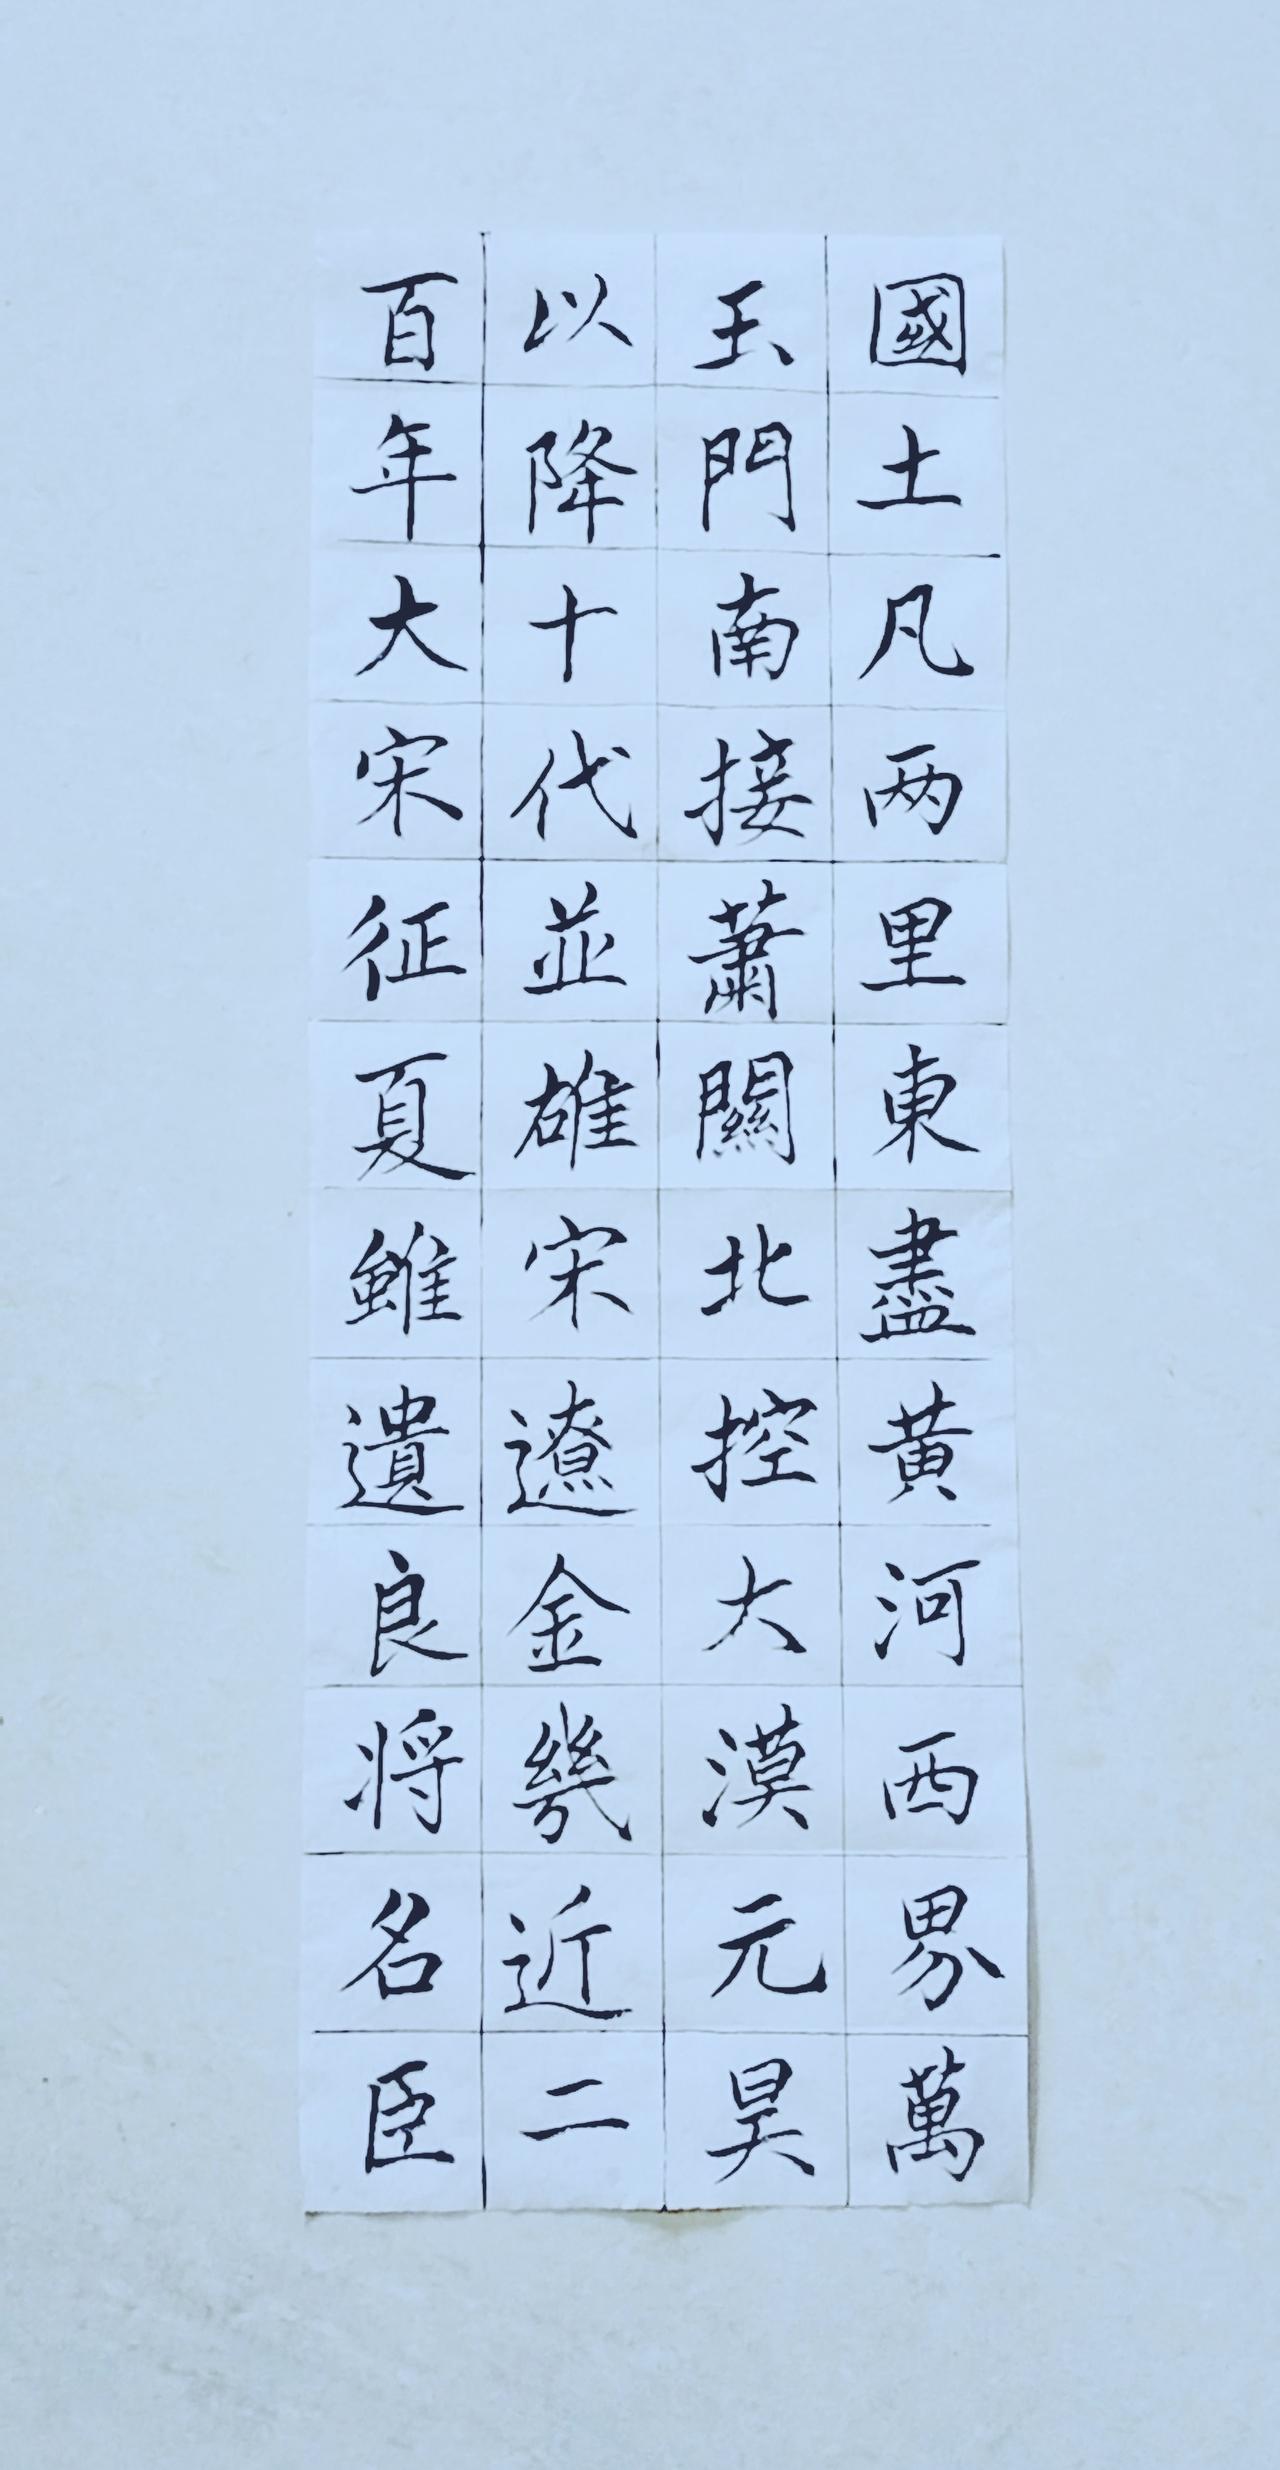 國土凡两里東盡黄河西界萬
玉門南接蕭關北控大漠元昊
以降十代並雄宋遼金幾近二
百年大宋征夏雖遺良将名臣